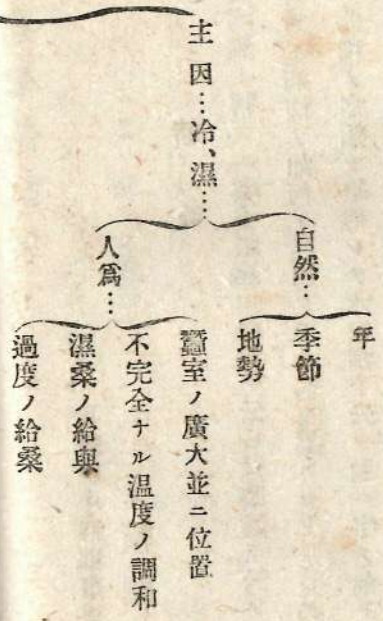 主因…冷、濕……
自然…
年
季節
地勢
人爲…
蠶室ノ廣大並ニ位置
不完全ナル温度ノ調和
濕桑ノ給與
過度ノ給桑